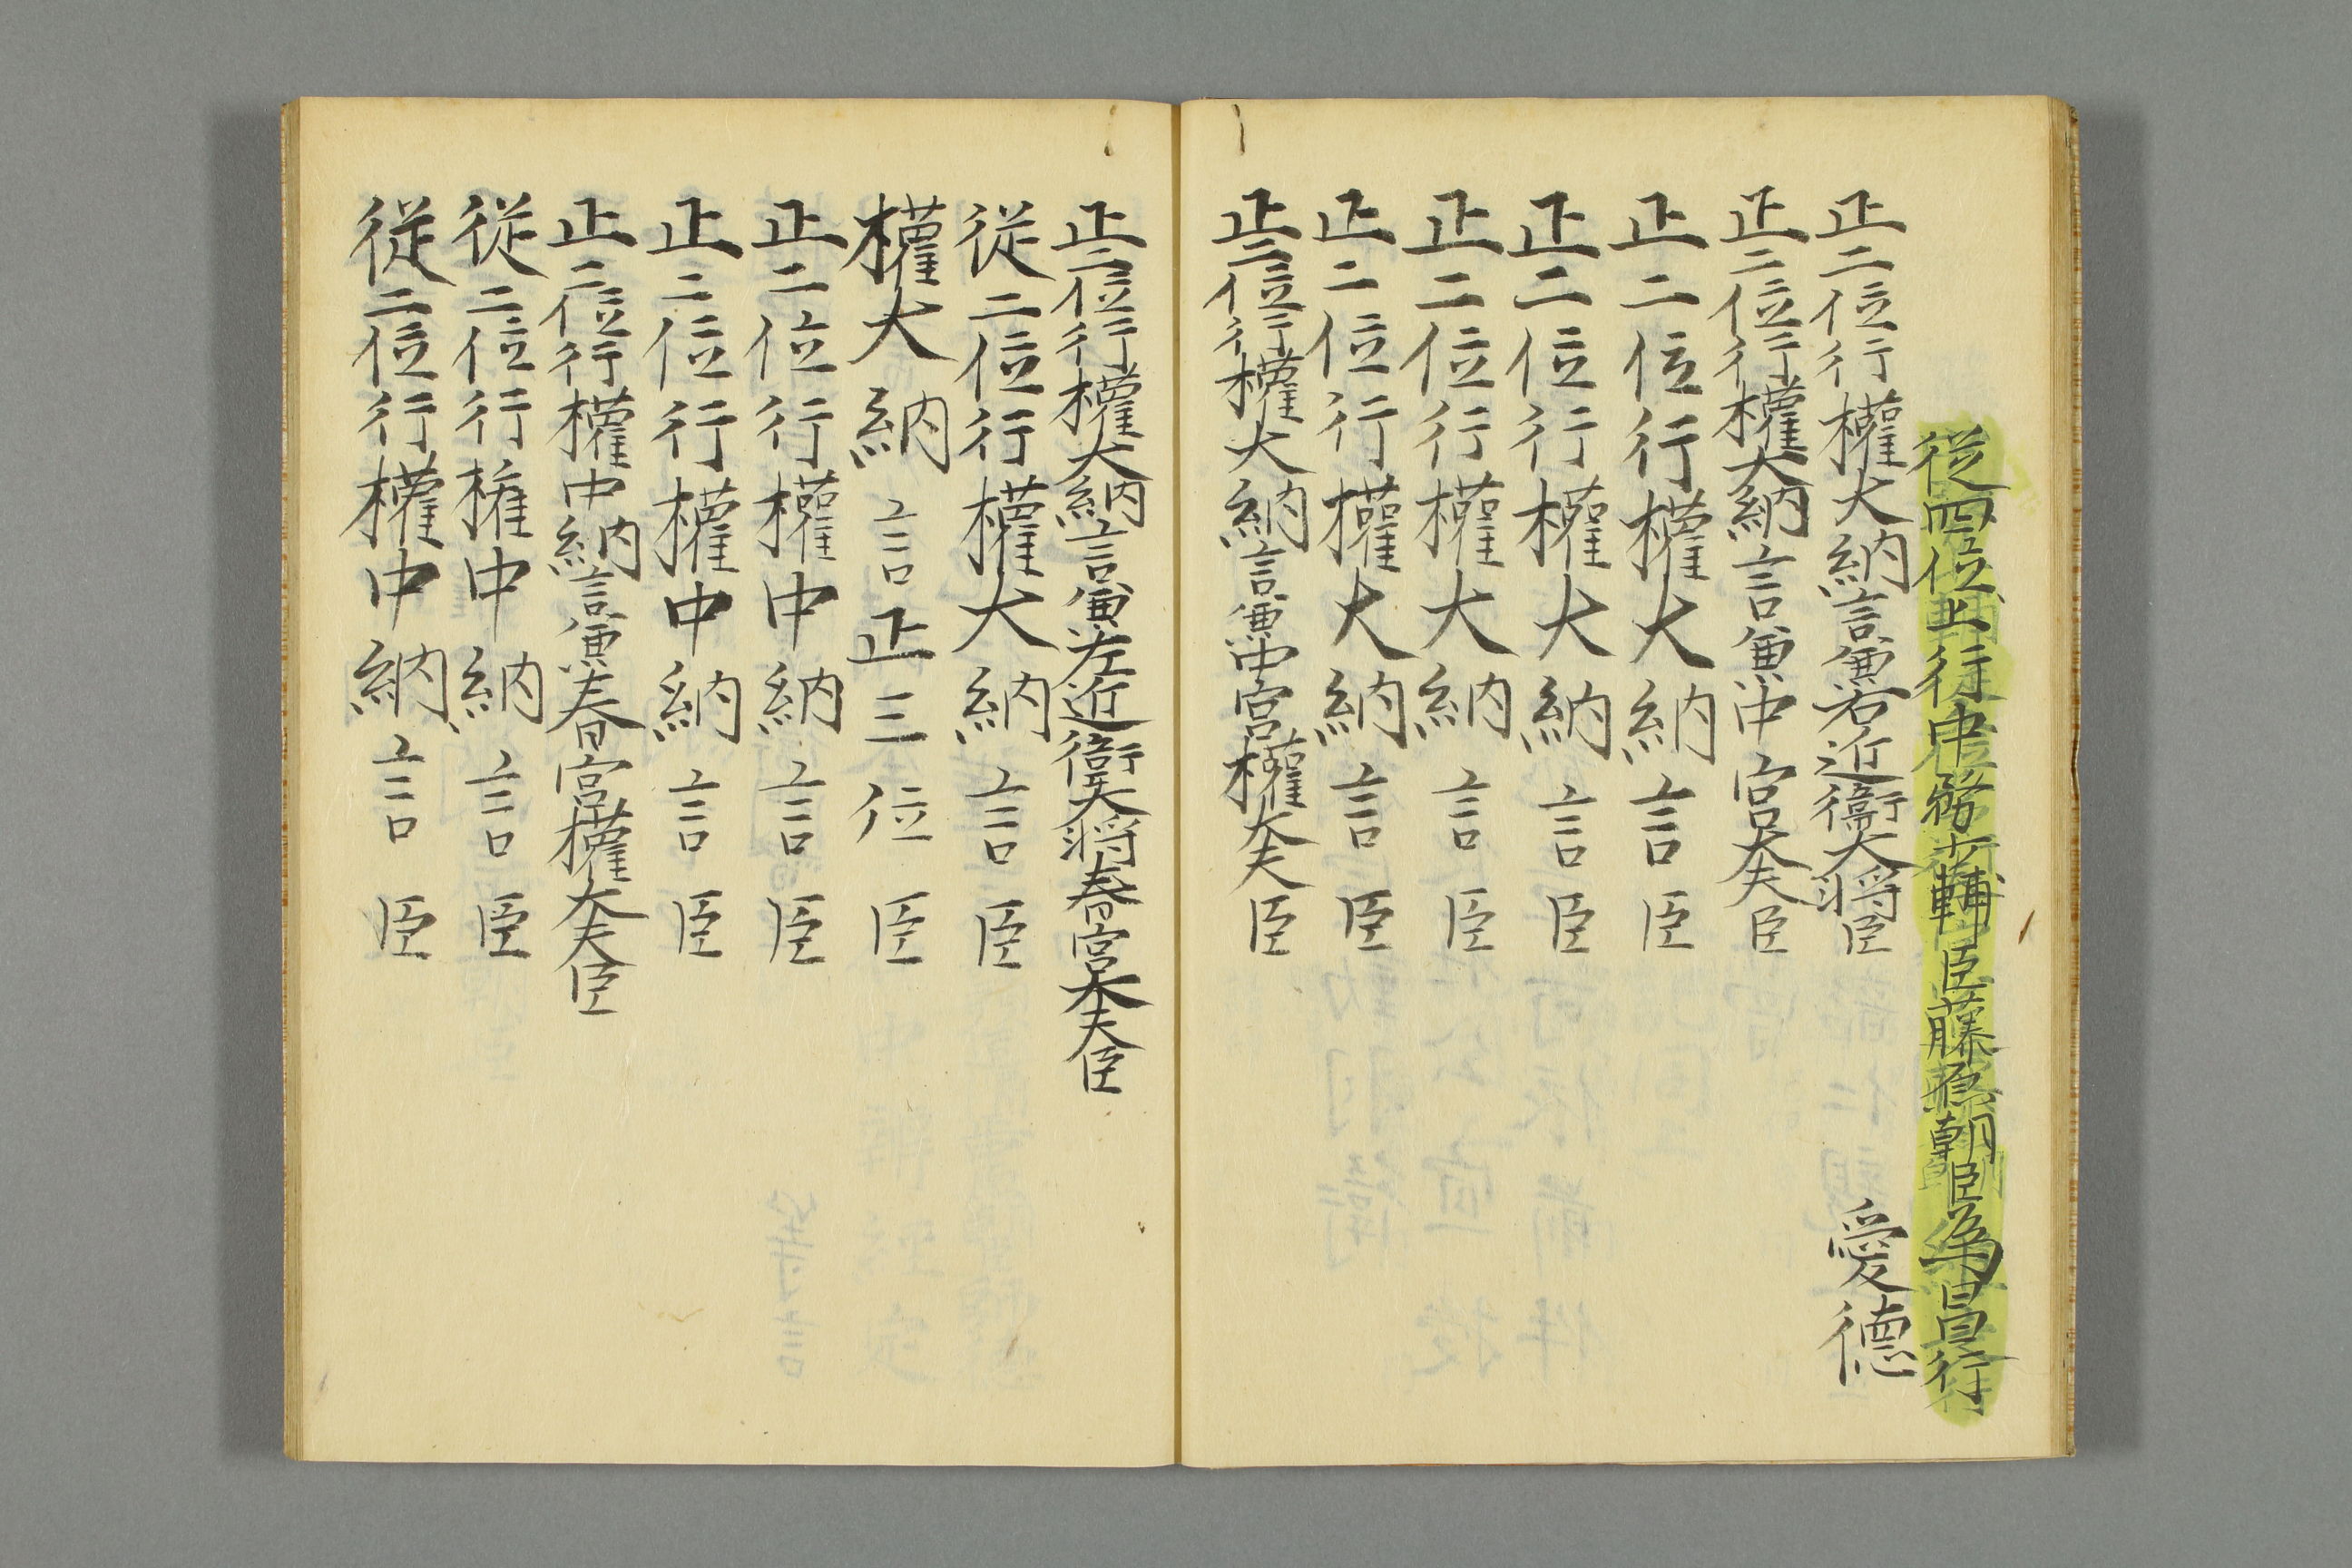 從四位上行中務少輔臣藤原朝臣為昌行
正二位行權大納言兼右近衛大将臣 愛德
正二位行權大納言兼中宮大夫臣
正二位行權大納言臣
正二位行權大納言臣
正二位行權大納言臣
正二位行權大納言臣
正二位行權大納言兼中宮權大夫臣
正二位行權大納言兼左近衛大将春宮大夫臣
從二位行權大納言臣
權大納言正三位臣
正二位行權中納言臣
正二位行權中納言臣
正二位行權中納言兼春宮權大夫臣
從二位行権中納言臣
從二位行權中納言臣